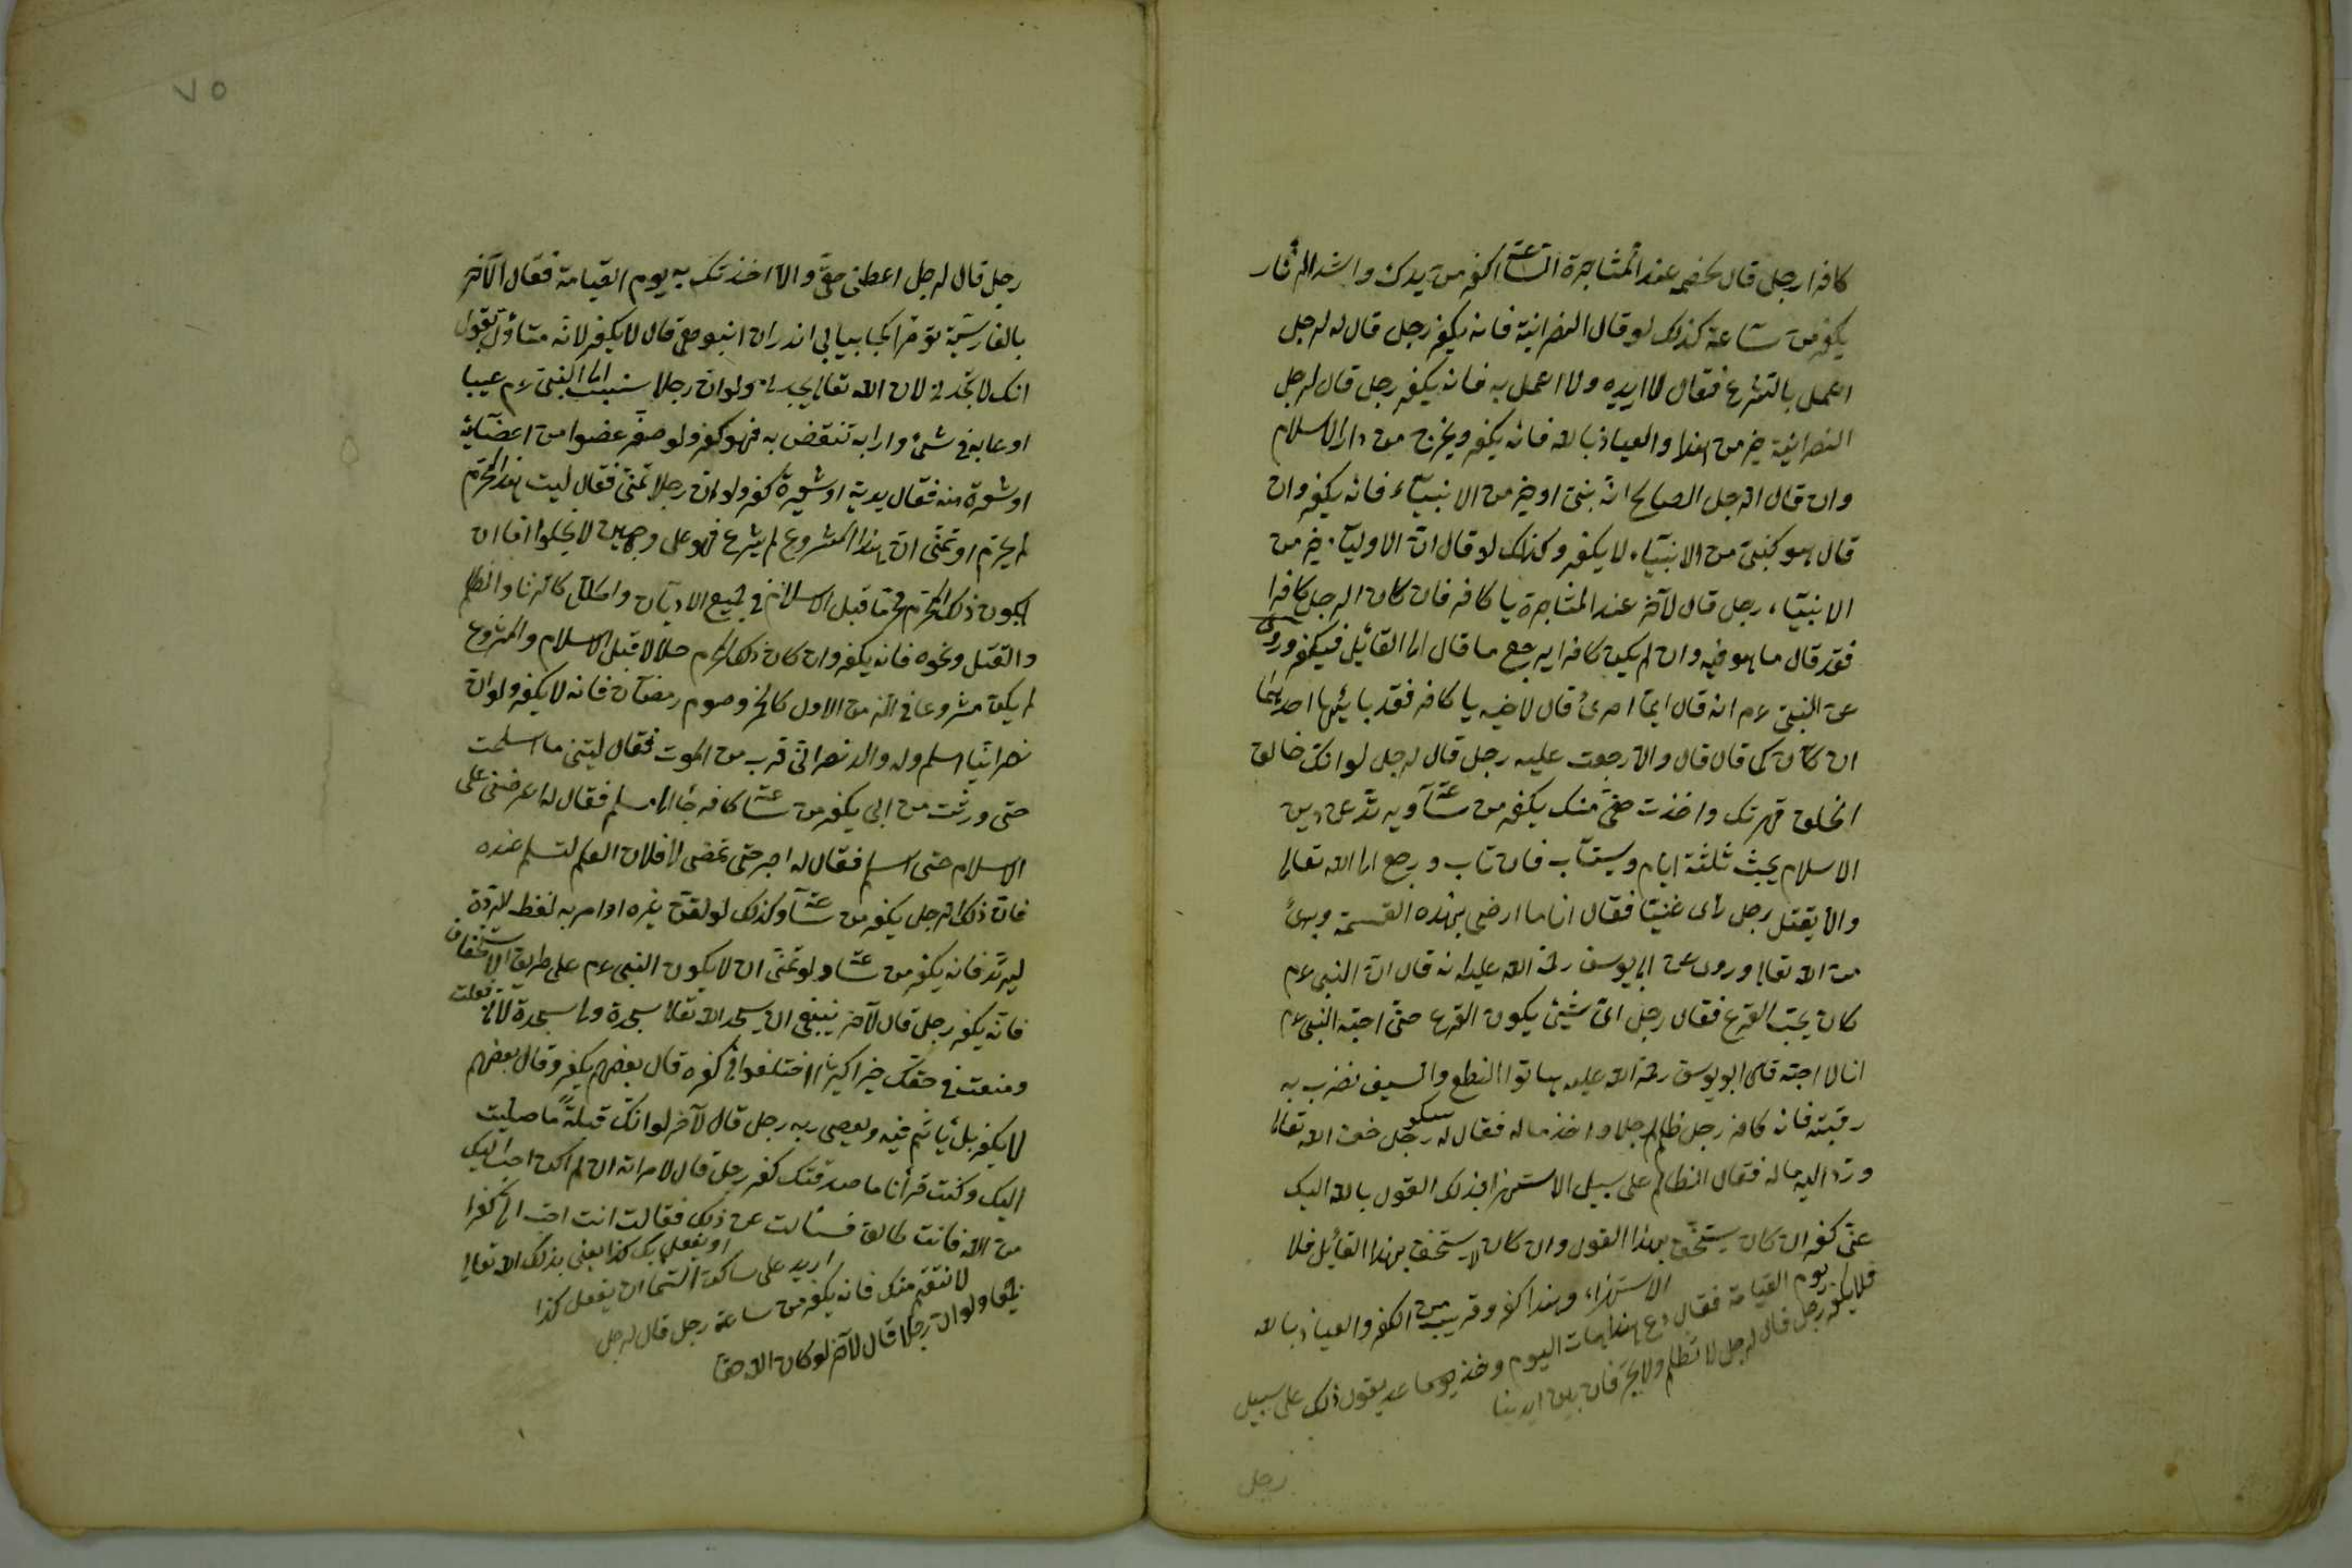 كافرا رجل قال لخصمه عند المشاجرة الساعة اكفر من يدك واشد الزنار
يكفر من ساعة كذلك لو قال النصرانية فانه يكفر رجل قال له لرجل
اعمل بالشرع فقال لا اريده ولا اعمل به فانه يكفر رجل قال لرجل
النصرانية خير من هذا والعياذ بالله فانه يكفر ويخرج من دار الاسلام
وان قال الرجل الصالح انه بنبى او خير من الانبياء فانه يكفر وان
قال هو كنبى من الانبياء لا يكفر وكذلك لو قال ان الاولياء خير من
الانبياء رجل قال لآخر عند المشاجرة يا كافر فان كان الرجل كافرا
فقد قال ما هو فيه وان لم يكن كافرا يرجع ما قال الى القائل فيكفر وروى
عن النبى ءم انه قال ايما امرئ قال لاخيه يا كافر فقد باء بها احدهما
ان كان كما قال قال والا رجعت عليه رجل قال لرجل لو انك خالق
الخلق قهرتك واخذت حقى منك يكفر من ساعته ويرتد عن دين
الاسلام يحبس ثلثة ايام ويستتاب فان تاب ورجع الى الله تعالى
والا يقتل رجل رأى غنيا فقال انا ما ارضى بهذه القسمة وبرئ
من الله تعالى وروى عن ابى يوسف رحمة الله عليه انه قال ان النبى ءم
كان يحب القرع فقال رجل اى شيئ يكون القرع حتى احبه النبى ءم
انا لا احبه قال ابو يوسف رحمة الله عليه هاتوا النطع والسيف نضرب به
رقبته فانه كافر رجل ظلم رجلا واخذ ماله فقال له رجل خف الله تعالى
ورد اليه ماله فقال الظالم على سبيل الاستهزا بذلك القول بالله اليك
عنى كفر ان كان يستخف بهذا القول وان كان لا يستخف بهذا القائل فلا
فلا يكفر رجل قال لرجل لا تظلم ولا تجر فان بين ايدينا
يوم القيامة فقال دع هذا هات اليوم وخذ يوما غد يقول ذلك على سبيل
الاستهزاء وهذا كفر وقريب من الكفر والعياذ بالله
رجل
٧٥
رجل قال لرجل اعطنى حقى والا اخذتك به يوم القيامة فقال الآخر
بالفارسية تو مرا كجا بيابى اندران انبوهى قال لا يكفر لانه متأول بقوله
انك لا تجدنى لان الله تعالى يجده ولو ان رجلا سب النبى ءم عيبا
او عابه فى شئ واراد به تنقص به فهو كفر ولو صغر عضوا من اعضائه
او شعرة منه فقال يديه او شعيرة كفر ولو ان رجلا تمنى فقال ليت هذا المحرم
لم يحرم او تمنى ان هذا المشروع لم يشرع فهو على وجهين لا يخلوا اما ان
يكون ذلك المحرم محرما قبل الاسلام فى جميع الاديان والملل كالزنا والظلم
والقتل ونحوه فانه يكفر وان كان ذلك المحرم حلالا قبل الاسلام والمشروع
لم يكن مشروعا فى الزمن الاول كالخمر وصوم رمضان فانه لا يكفر ولو ان
نصرانيا اسلم وله والد نصرانى قرب من الموت فقال ليتنى ما اسلمت
حتى ورثت من ابى يكفر من ساعته كافر جاء الى مسلم فقال له اعرض على
الاسلام حتى اسلم فقال له اصبر حتى تمضى الى فلان العالم لتسلم عنده
فان ذلك الرجل يكفر من ساعته وكذلك لو لقن غيره او امر به لفظ الردة
ليرتد فانه يكفر من ساعته ولو تمنى ان لا يكون النبى ءم على طريق الاستخفاف
فانه يكفر رجل قال لآخر ينبغى ان يسجد الله تعالى سجدة ولى سجدة لانى فعلت
وصنعت فى حقك خيرا كثيرا اختلفوا فى كفره قال بعضهم يكفر وقال بعضهم
لا يكفر بل يأثم فيه ويعصى ربه رجل قال لآخر لو انك قبلة ما صليت
اليك وكنت قرأنا ما صدقتك كفر رجل قال لامراته ان لم اكن احب اليك
من الله فانت طالق فسئالت عن ذلك فقالت انت احب الى كفرا
جميعا ولو ان رجلا قال لآخر لو كان الله حقا
لانتقم منك فانه يكفر من ساعة رجل قال لرجل
اريد على ساكن السما ان يفعل كذا
او يفعل بك كذا يعنى بذلك الله تعالى